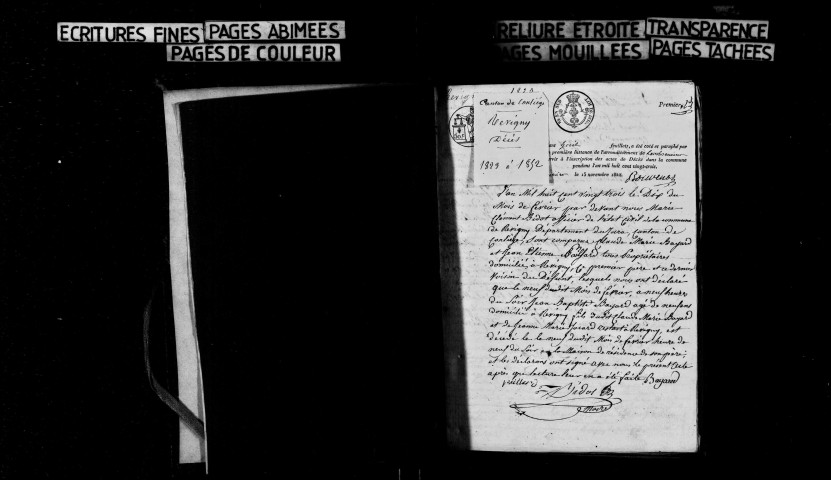 ECRITURES FINES PAGES ABIMEES
PAGES DE COULEUR
RELIURE ETROITE TRANSPARENCE
PAGES MOUILLEES PAGES TACHEES
1823
Canton de Conliège
Revigny
Décès
1823 à 1832
Premier
feuillets, a été coté et paraphé par
première Instance de l'arrondissement de
à l'inscription des actes de Décès dans la commune
pendant l'an mil huit cent vingt-trois.
le 15 novembre 1822.
L'an Mil huit cent vingt trois le Dix du
Mois de février par devant nous Marie
Clément Bidot officier de l'état Civil de la commune
de Revigny Département du Jura, canton de
Conliège, Sont comparus Claude Marie Bayard
et Jean Etienne tous Propriétaires
domiciliés à Revigny, le premier père et ce dernier
voisin du Défunt, lesquels nous ont déclaré
que le neuf dudit Mois de février, à neuf heures
du Soir Jean Baptiste Bayard agé de neuf ans
domicilié à Revigny fils dudit Claude Marie Bayard
et de Jeanne Marie à Revigny, est
décédé le neuf dudit Mois de février heure de
neuf du Soir en la Maison de résidence de son père;
et les déclarans ont signé avec nous le présent acte
après que lecture leur en a été faite Bayard
Bidot
Maire